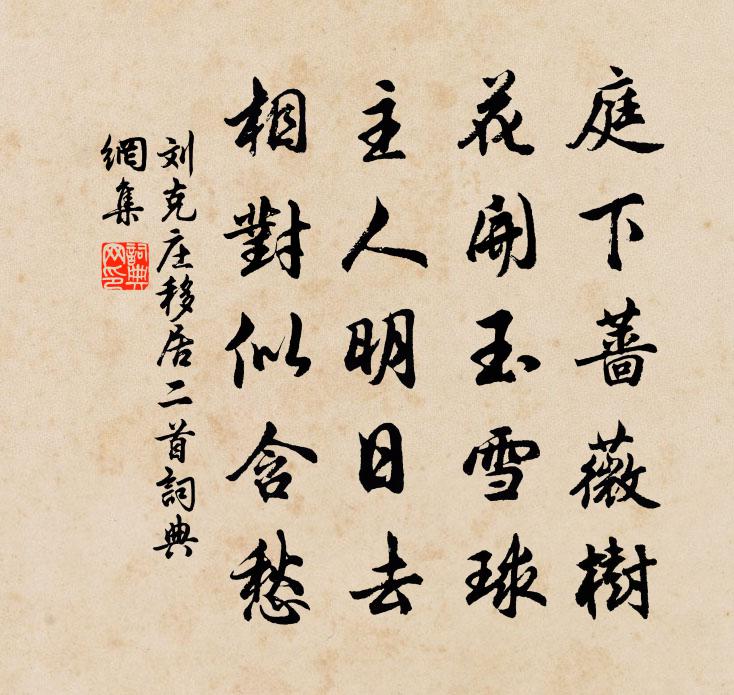 庭下薔薇樹
花開玉雪球
主人明日去
相對似含愁
刘克庄移居二首詞典
網集
詞典
网印